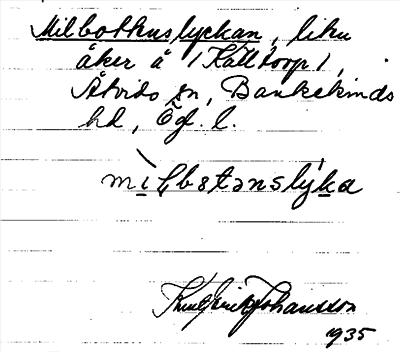 Milbotthuslyckan, liten
åker å /Kalltorp/,
Åtvids sn, Bankekinds
hd, Ögl. l.
mìlbstənslýka
Knut Erik Johansson
1935